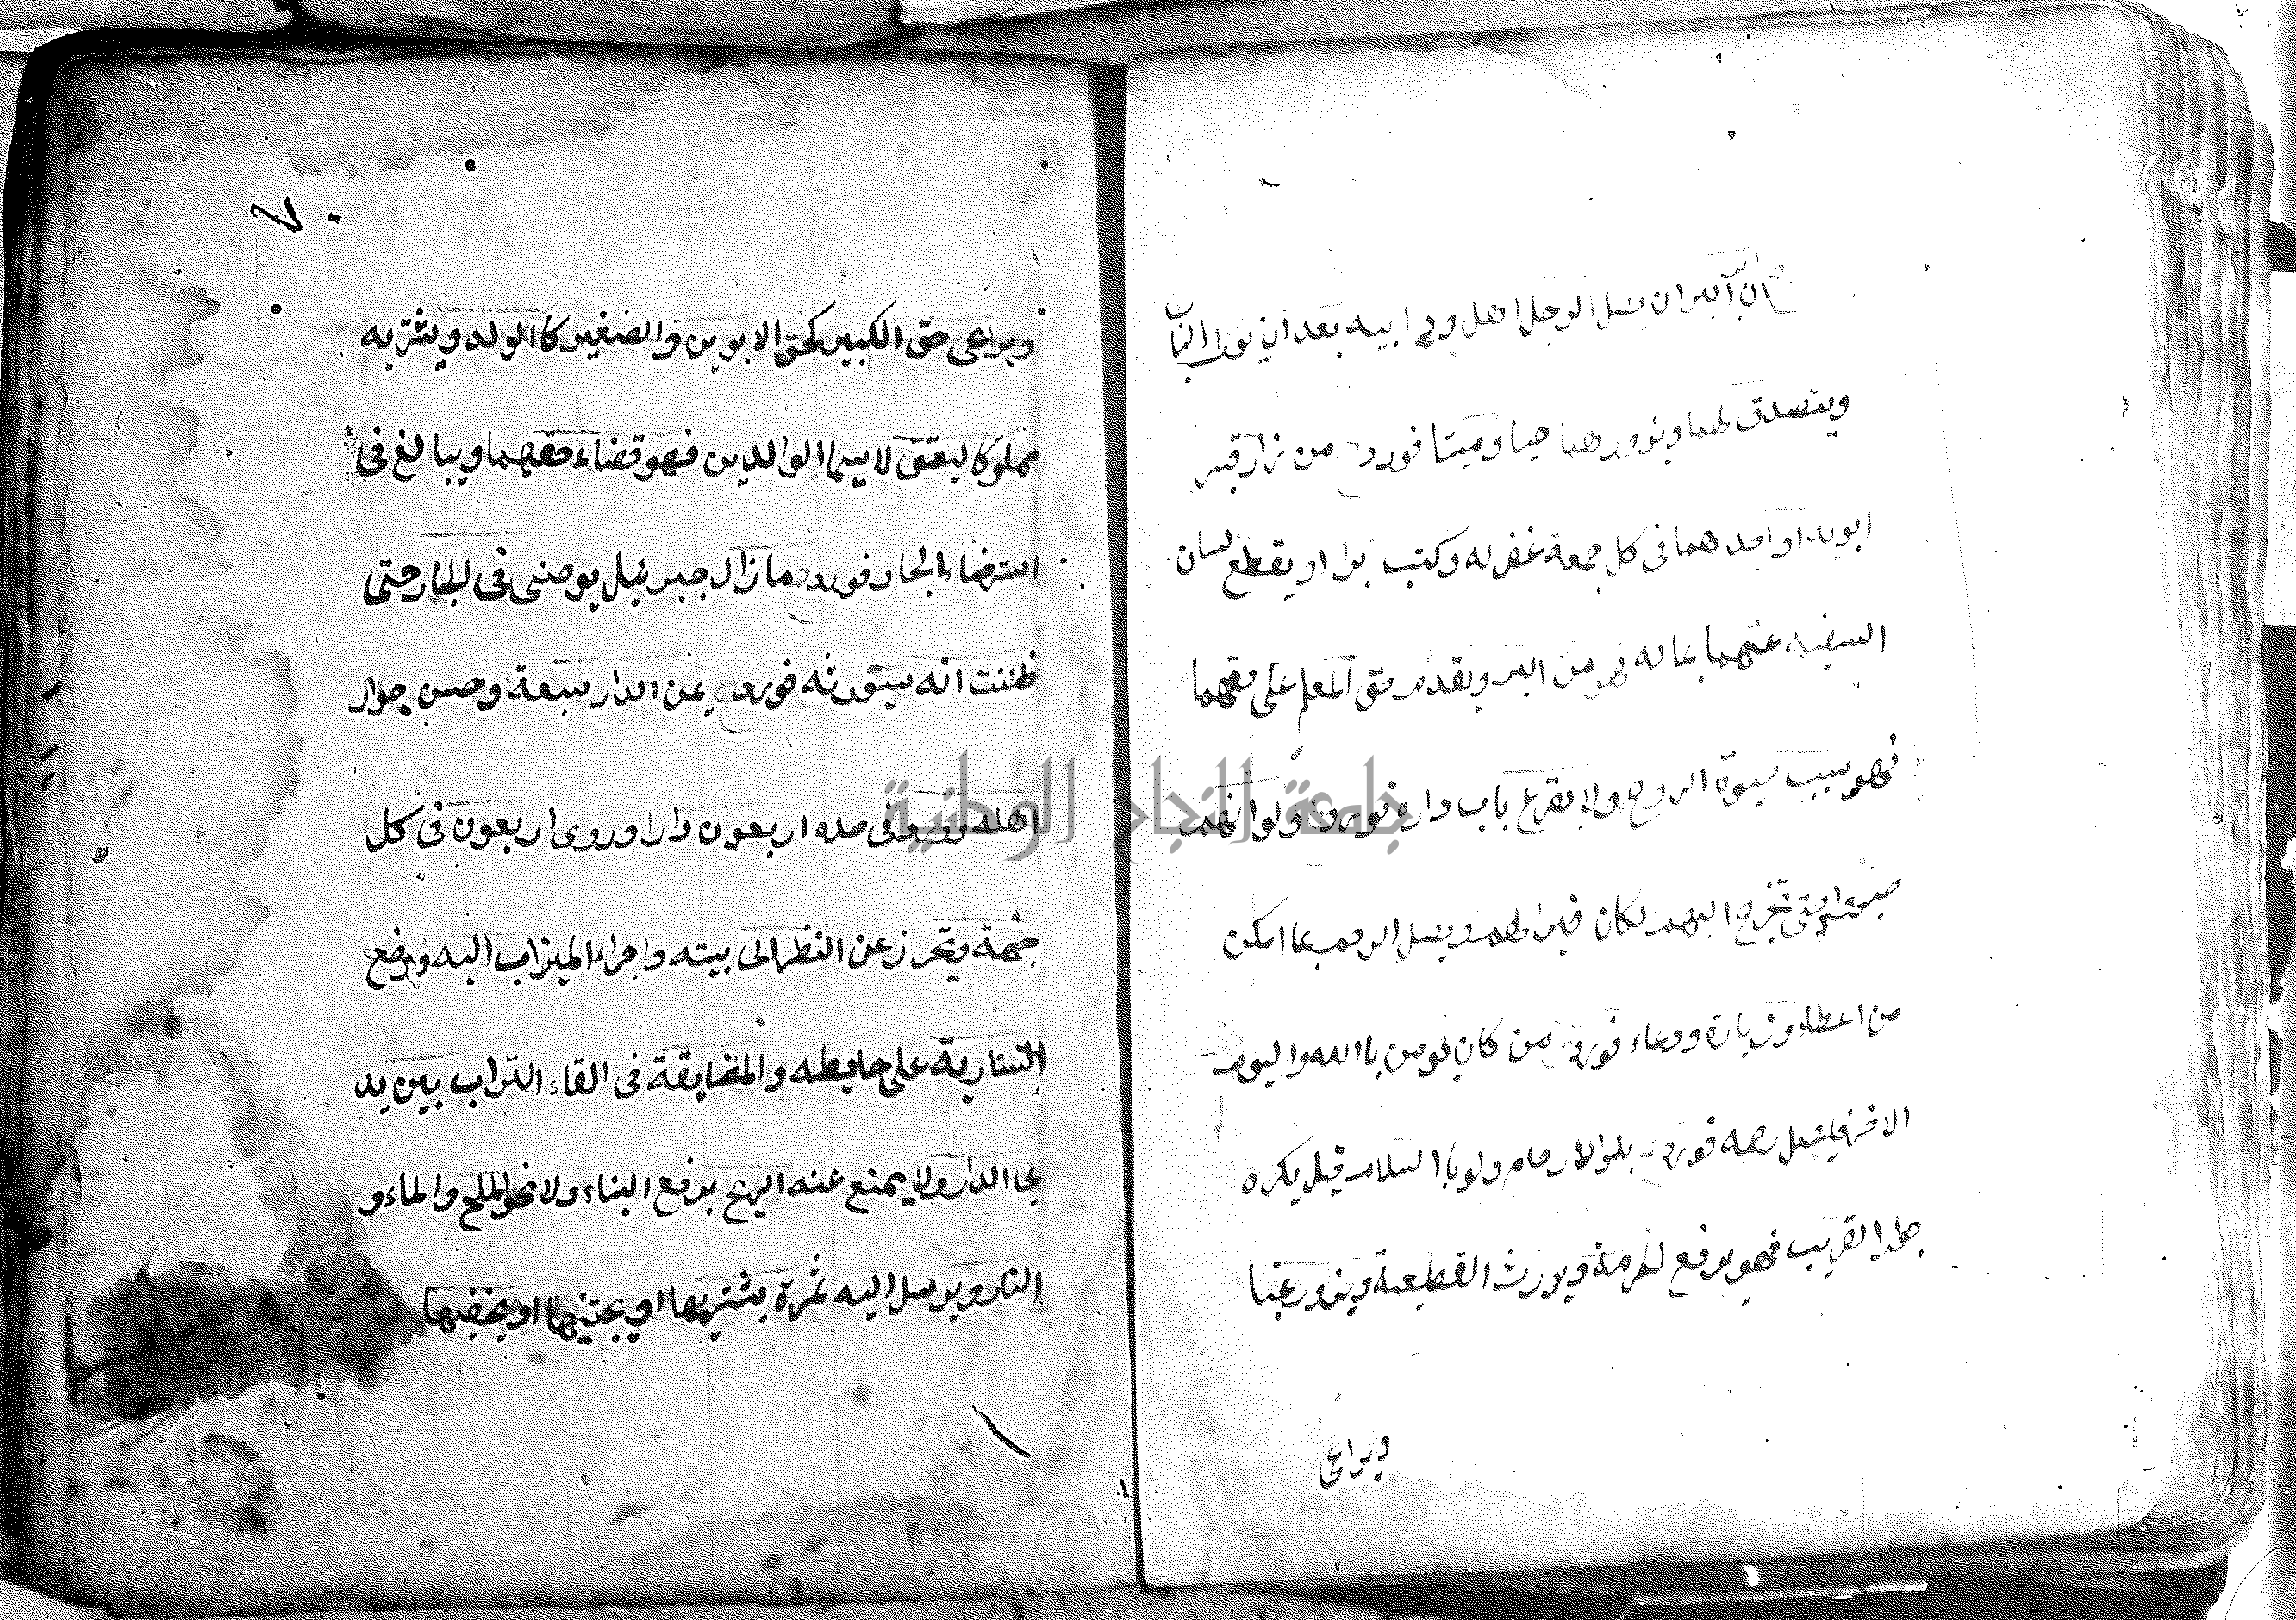 ان ابر البر ان يصل الرجل اهل ود ابيه بعد ان تولى الاب
ويتصدق لهما ويزورهما حيا وميتا فورد من زار قبر
ابويه او احدهما في كل جمعة غفر له وكتب برا او يقطع لسان
السفيه عنهما بماله فهو من البر ويقدم حق المعلم على حقهما
فهو سبب حيوة الروح ولا يقرع باب داره فورد ولو انهم
صبروا حتى تخرج اليهم لكان خيرا لهم ويصل الرحم بما امكن
من اعطاء وزيارة ودعاء فورد من كان يومن باالله واليوم
الاخر فليصل رحمه فورد بلوا الارحام ولو باالسلام قيل يكره
جلدا القريب فهو يرفع الحرمة ويورث القطيعة ويزور غبا
ويراعى
٧٠
ويراعى حق الكبير كحق الابوين والصغير كاالولد ويشتريه
مملوكا ليعتق لا سيما الوالدين فهو قضاء حقهما ويبالغ في
استرضاء الجار فورد ما زال جبرئيل يوصنى في الجار حتى
ظننت انه سيورثه فورد يمن الدار سعة وحسن جوار
اهله ورد في حده اربعون دارا وروى اربعون في كل
جهة وتحرز عن النظر الى بيته واجراء الميزاب اليه ووضع
السارية على حايطه والمضايقة في القاء التراب بين يد
ى الدار ولا يمنع عنه الريح برفع البناء ولا نحو الملح والماء و
النار ويرسل اليه ثمرة يشتريها او يجتنيها او يخفيها
جامعة النجاح الوطنية